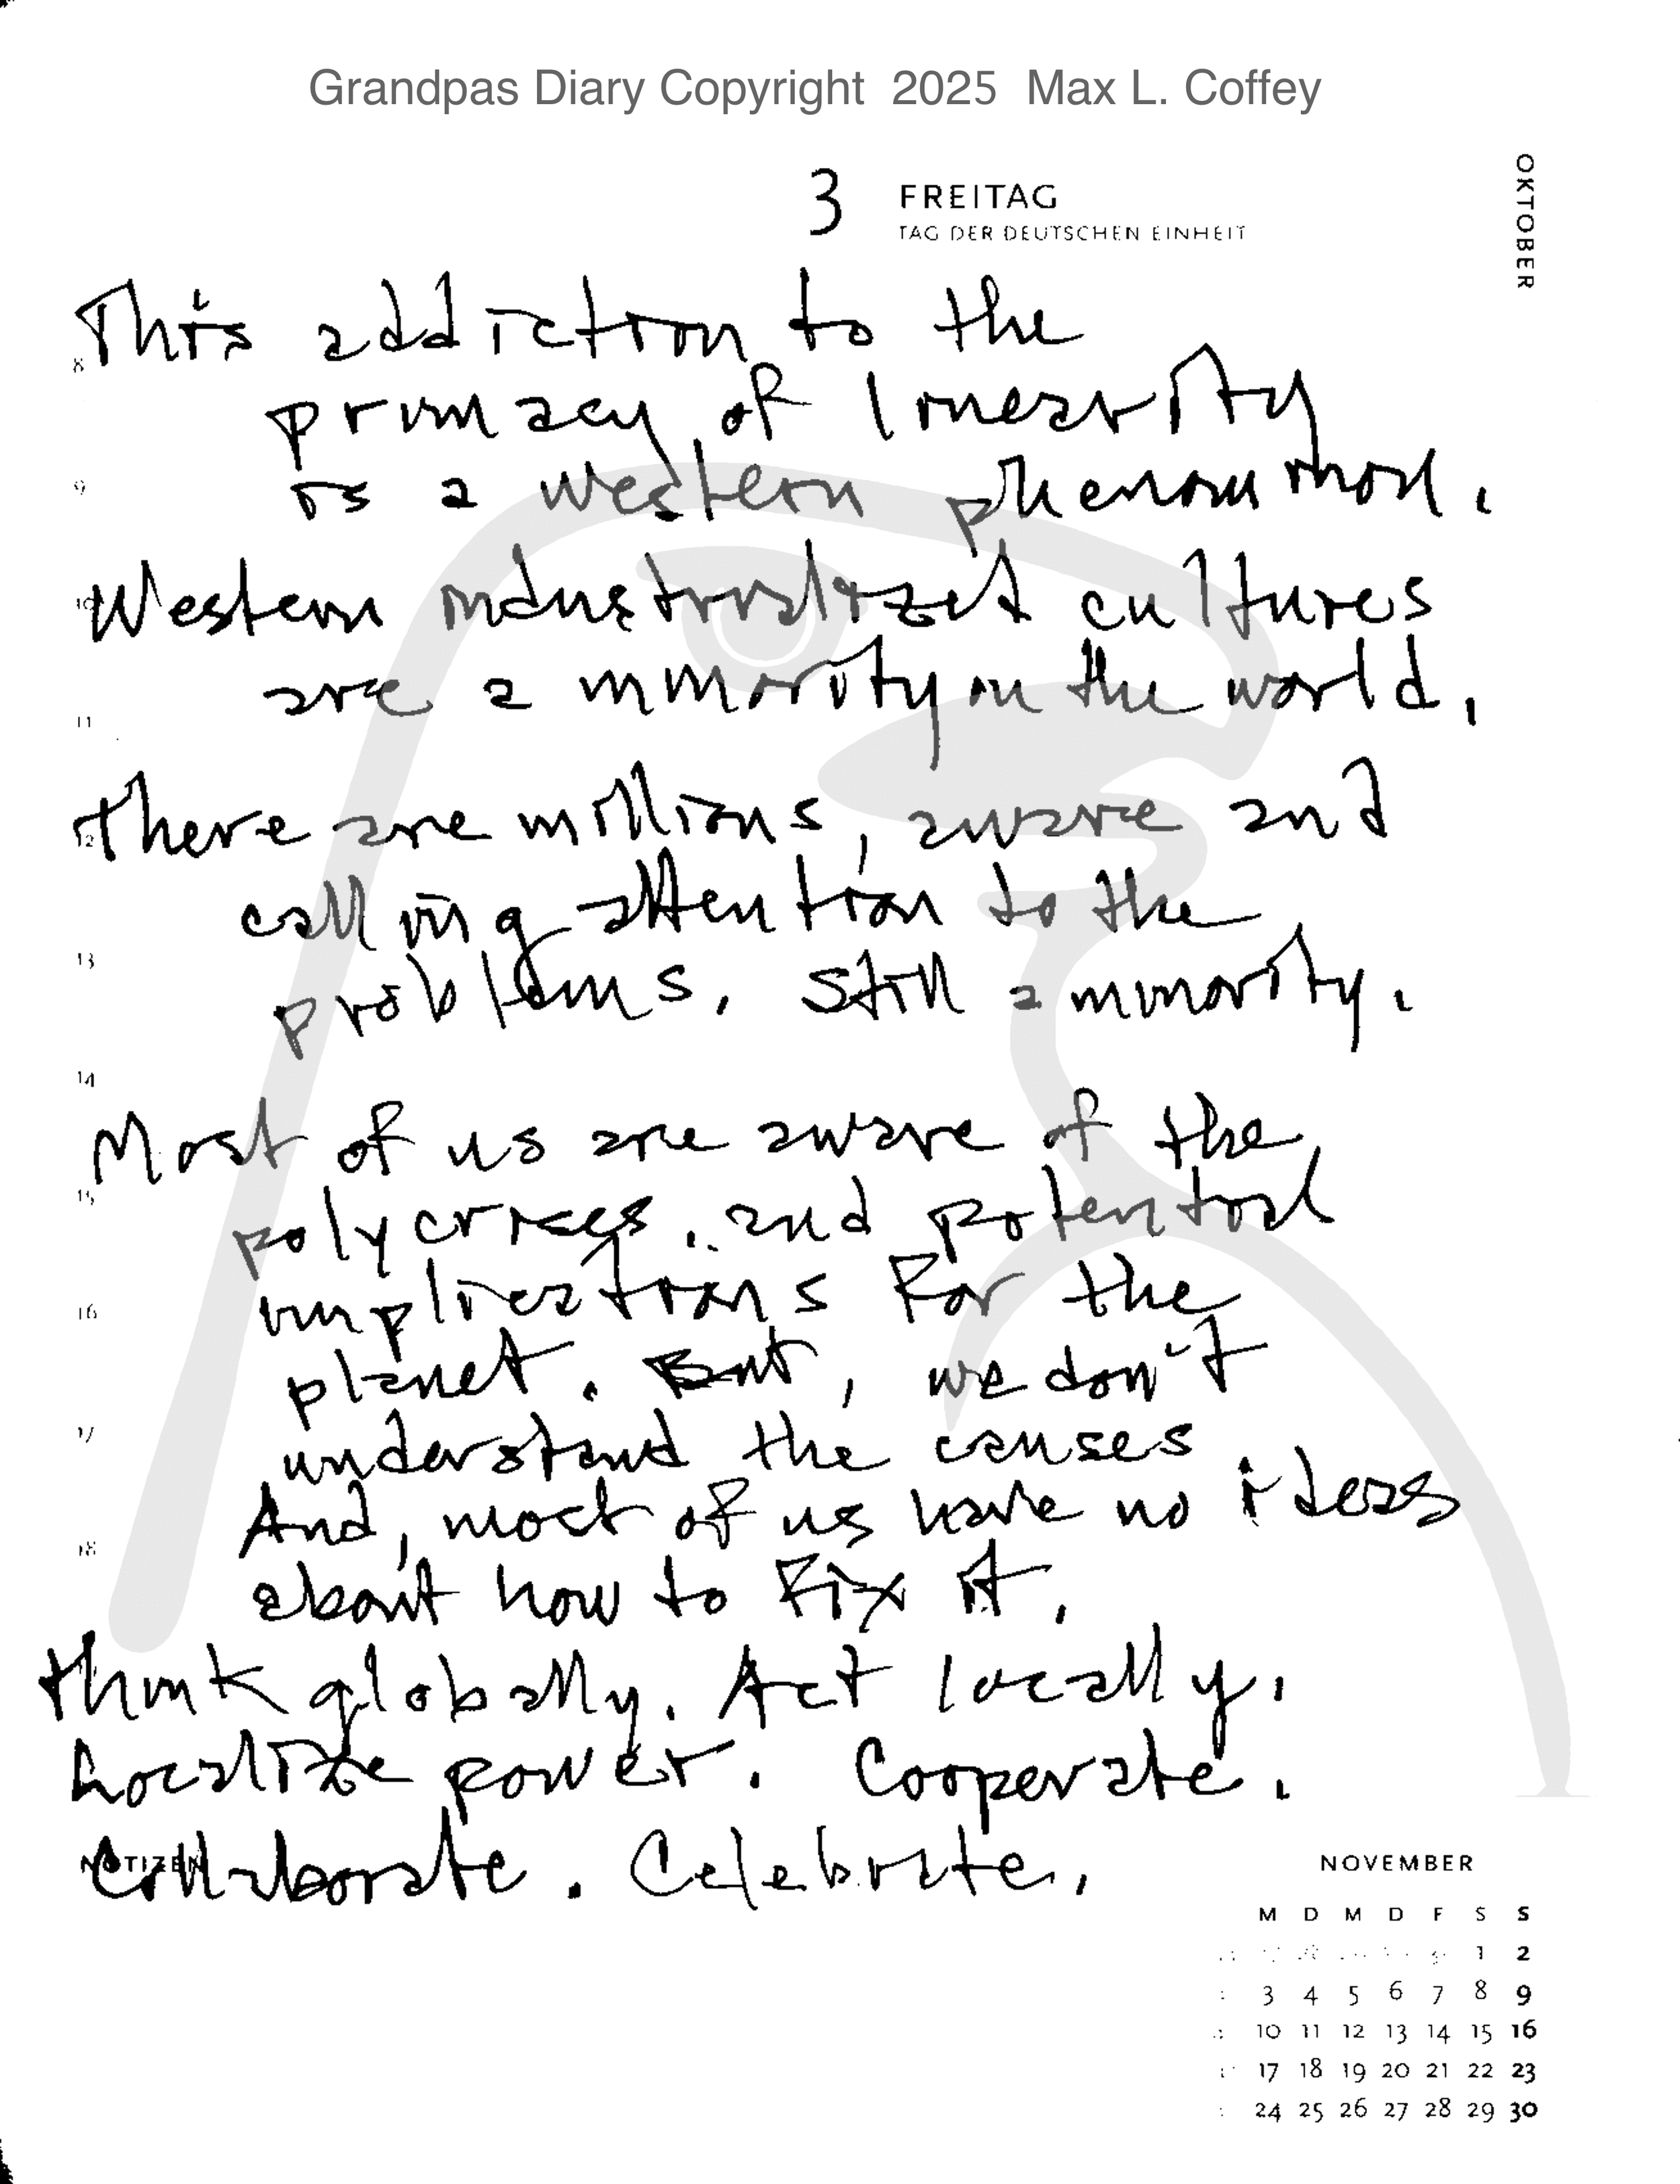 Grandpas Diary Copyright 2025 Max L. Coffey
OKTOBER
3 FREITAG
TAG DER DEUTSCHEN EINHEIT
This addiction to the
8
primacy of linearity
9
is a western phenomimon.
10
Western industrialized cultures
are a minority in the world.
11
There are millions, aware and
12
calling attention to the
13
problems. Still a minority.
14
Most of us are aware of the
15
polycrises. and potential
implications for the
16
planet. But, we don't
17
understand the causes
And, most of us have no ideas
18
about how to fix it.
Think globally. Act locally.
Localize power. Cooperate.
NOTIZEN
Collaborate. Celebrate.
NOVEMBER
M D M D F S S
1 2
3 4 5 6 7 8 9
10 11 12 13 14 15 16
17 18 19 20 21 22 23
24 25 26 27 28 29 30